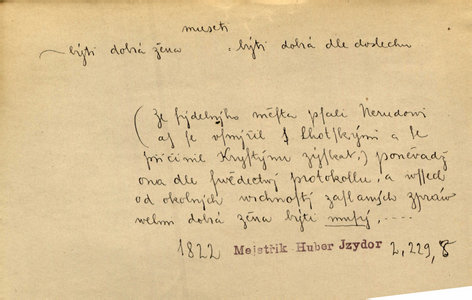 museti
býti dobrá žena býti dobrá dle doslechu
(Ze sydelnjho města psali Nerudowi
aj se usmjřil s Lhotskými a se
přičinil Krystýnu zýskat,) poněvadž
ona dle swědectwj protokollu, a wssech
od okolnjch wrchnostj zaslaných zpráw
welmi dobrá žena býti musý, ....
1822 Mejstřik Huber Jzydor 2, 229, 8